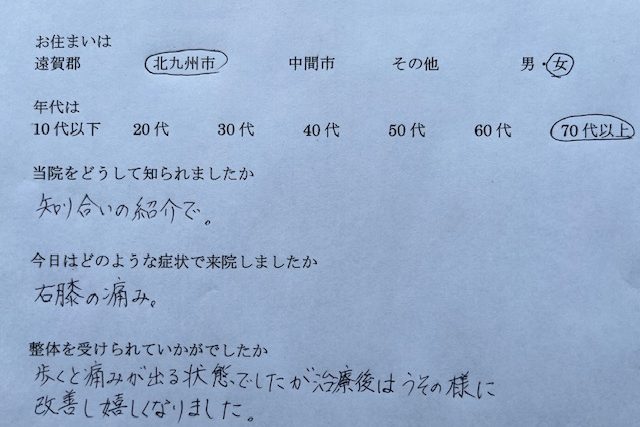 お住まいは
遠賀郡 北九州市 中間市 その他 男・女
年代は
10代以下 20代 30代 40代 50代 60代 70代以上
当院をどうして知られましたか
知り合いの紹介で。
今日はどのような症状で来院しましたか
右膝の痛み。
整体を受けられていかがでしたか
歩くと痛みが出る状態でしたが治療後はうその様に
改善し嬉しくなりました。